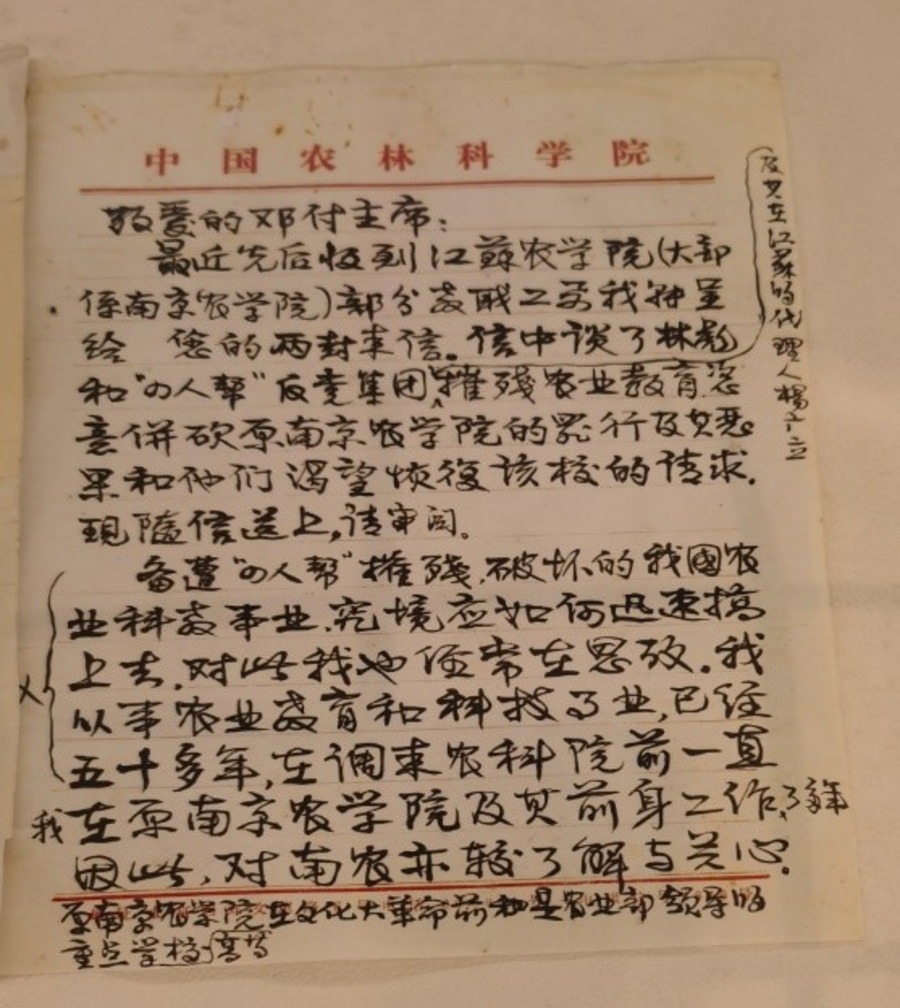 中国农林科学院
敬爱的邓付主席：
最近先后收到江蘇农学院（大部
係南京农学院）部分教職工要我轉呈
给 您的两封来信。信中谈了林彪
和“四人帮”反党集团摧残农业教育恣
意併砍原南京农学院的罪行及其恶
果和他们渴望恢復该校的请求。
现随信送上，请审阅。
及其在江苏的代理人杨广立
备遭“四人帮”摧残、破坏的我國农
业科教事业，究境应如何迅速搞
上去，对此我也经常在思考。我
从事农业教育和科技事业，已经
五十多年，在调来农科院前一直
我在原南京农学院及其前身工作，多年
因此，对南农亦较了解与关心。
原南京农学院在文化大革命前和是农业部领导的
重点学校